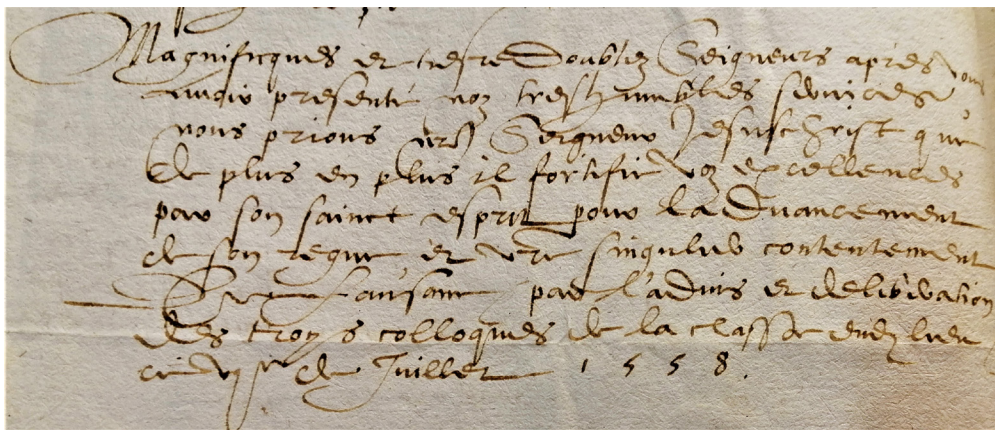 Magnificques et tresredoubtez Seigneurs apres vous
auoir presente noz treshumbles seruices
nous prions nre Seigneur Jesuschrist que
de plus en plus il fortifie voz excellences
par son sainct esprit pour laduancement
de son regne et vre singulier contentement
De Lausanne par l'aduis et deliberation
des troys colloques de la classe dud lieu
ce vj de Juillet 1558.